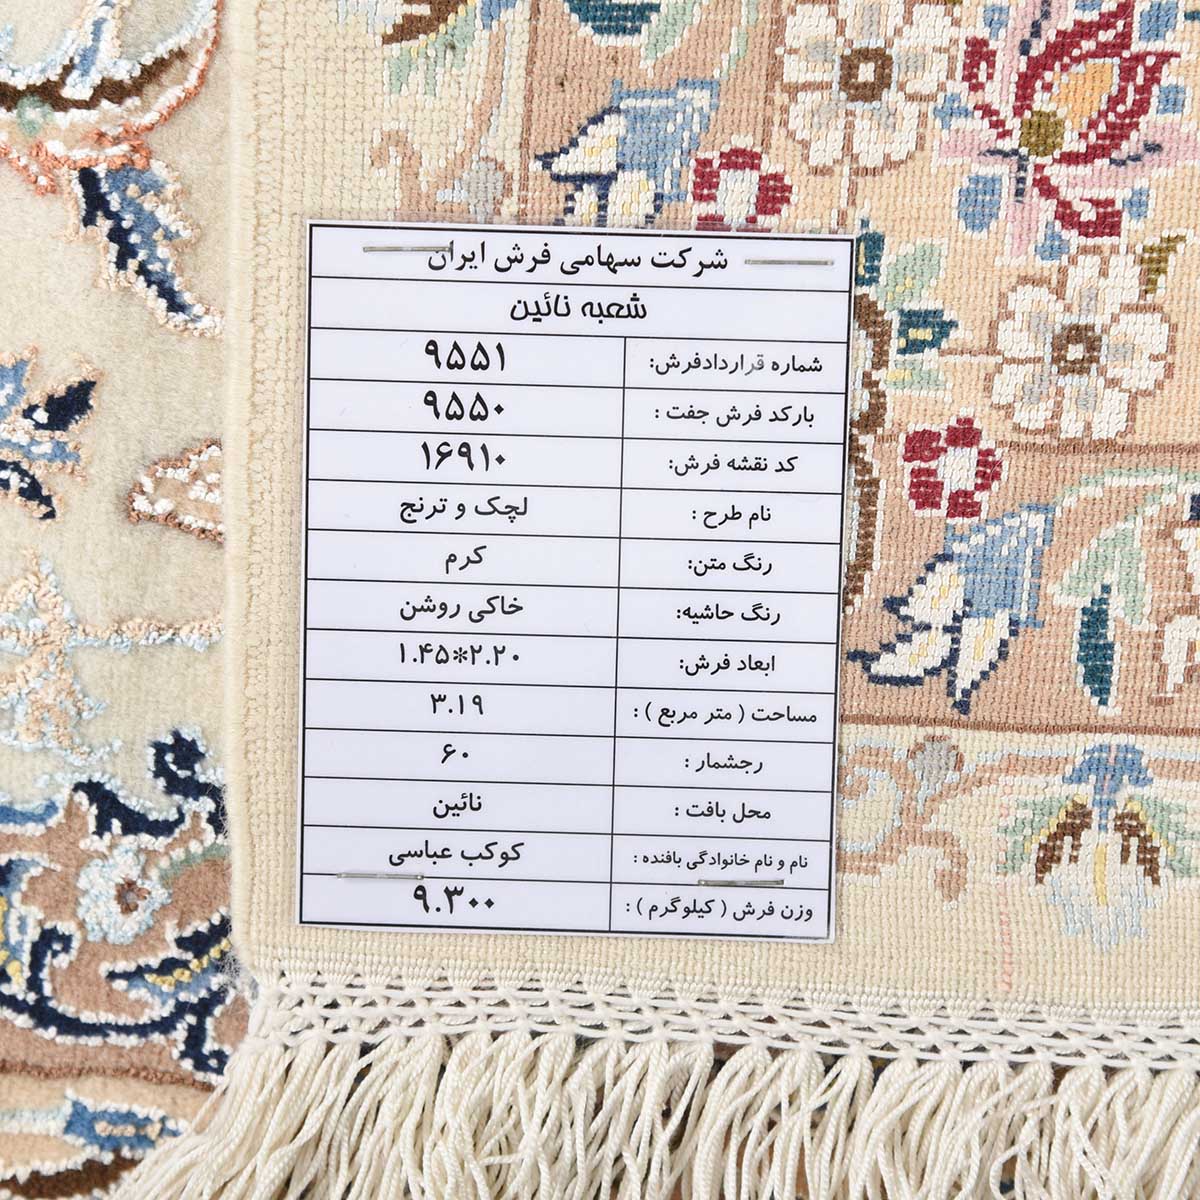 شرکت سهامی فرش ایران
شعبه نائین
شماره قراردادفرش: ۹۵۵۱
بارکد فرش جفت : ۹۵۵۰
کد نقشه فرش: ۱۶۹۱۰
نام طرح : لچک و ترنج
رنگ متن: کرم
رنگ حاشیه: خاکی روشن
ابعاد فرش: ۱.۴۵*۲.۲۰
مساحت ( متر مربع ) : ۳.۱۹
رجشمار : ۶۰
محل بافت : نائین
نام و نام خانوادگی بافنده : کوکب عباسی
وزن فرش ( کیلوگرم ) : ۹.۳۰۰